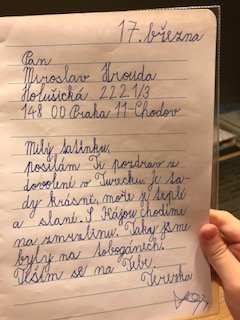 17. března
Pan
Miroslav Hrouda
Hošušická 2221/3
148 00 Praha 11-Chodov
Milý tatínku,
posílám Ti pozdrav z
dovolené v Turecku. Je ta-
dy krásně, moře je teplé
a slané. S Kájou chodíme
na zmrzlinu. Taky jsme
byly na tobogánech.
Těším se na Tebe
Terezka